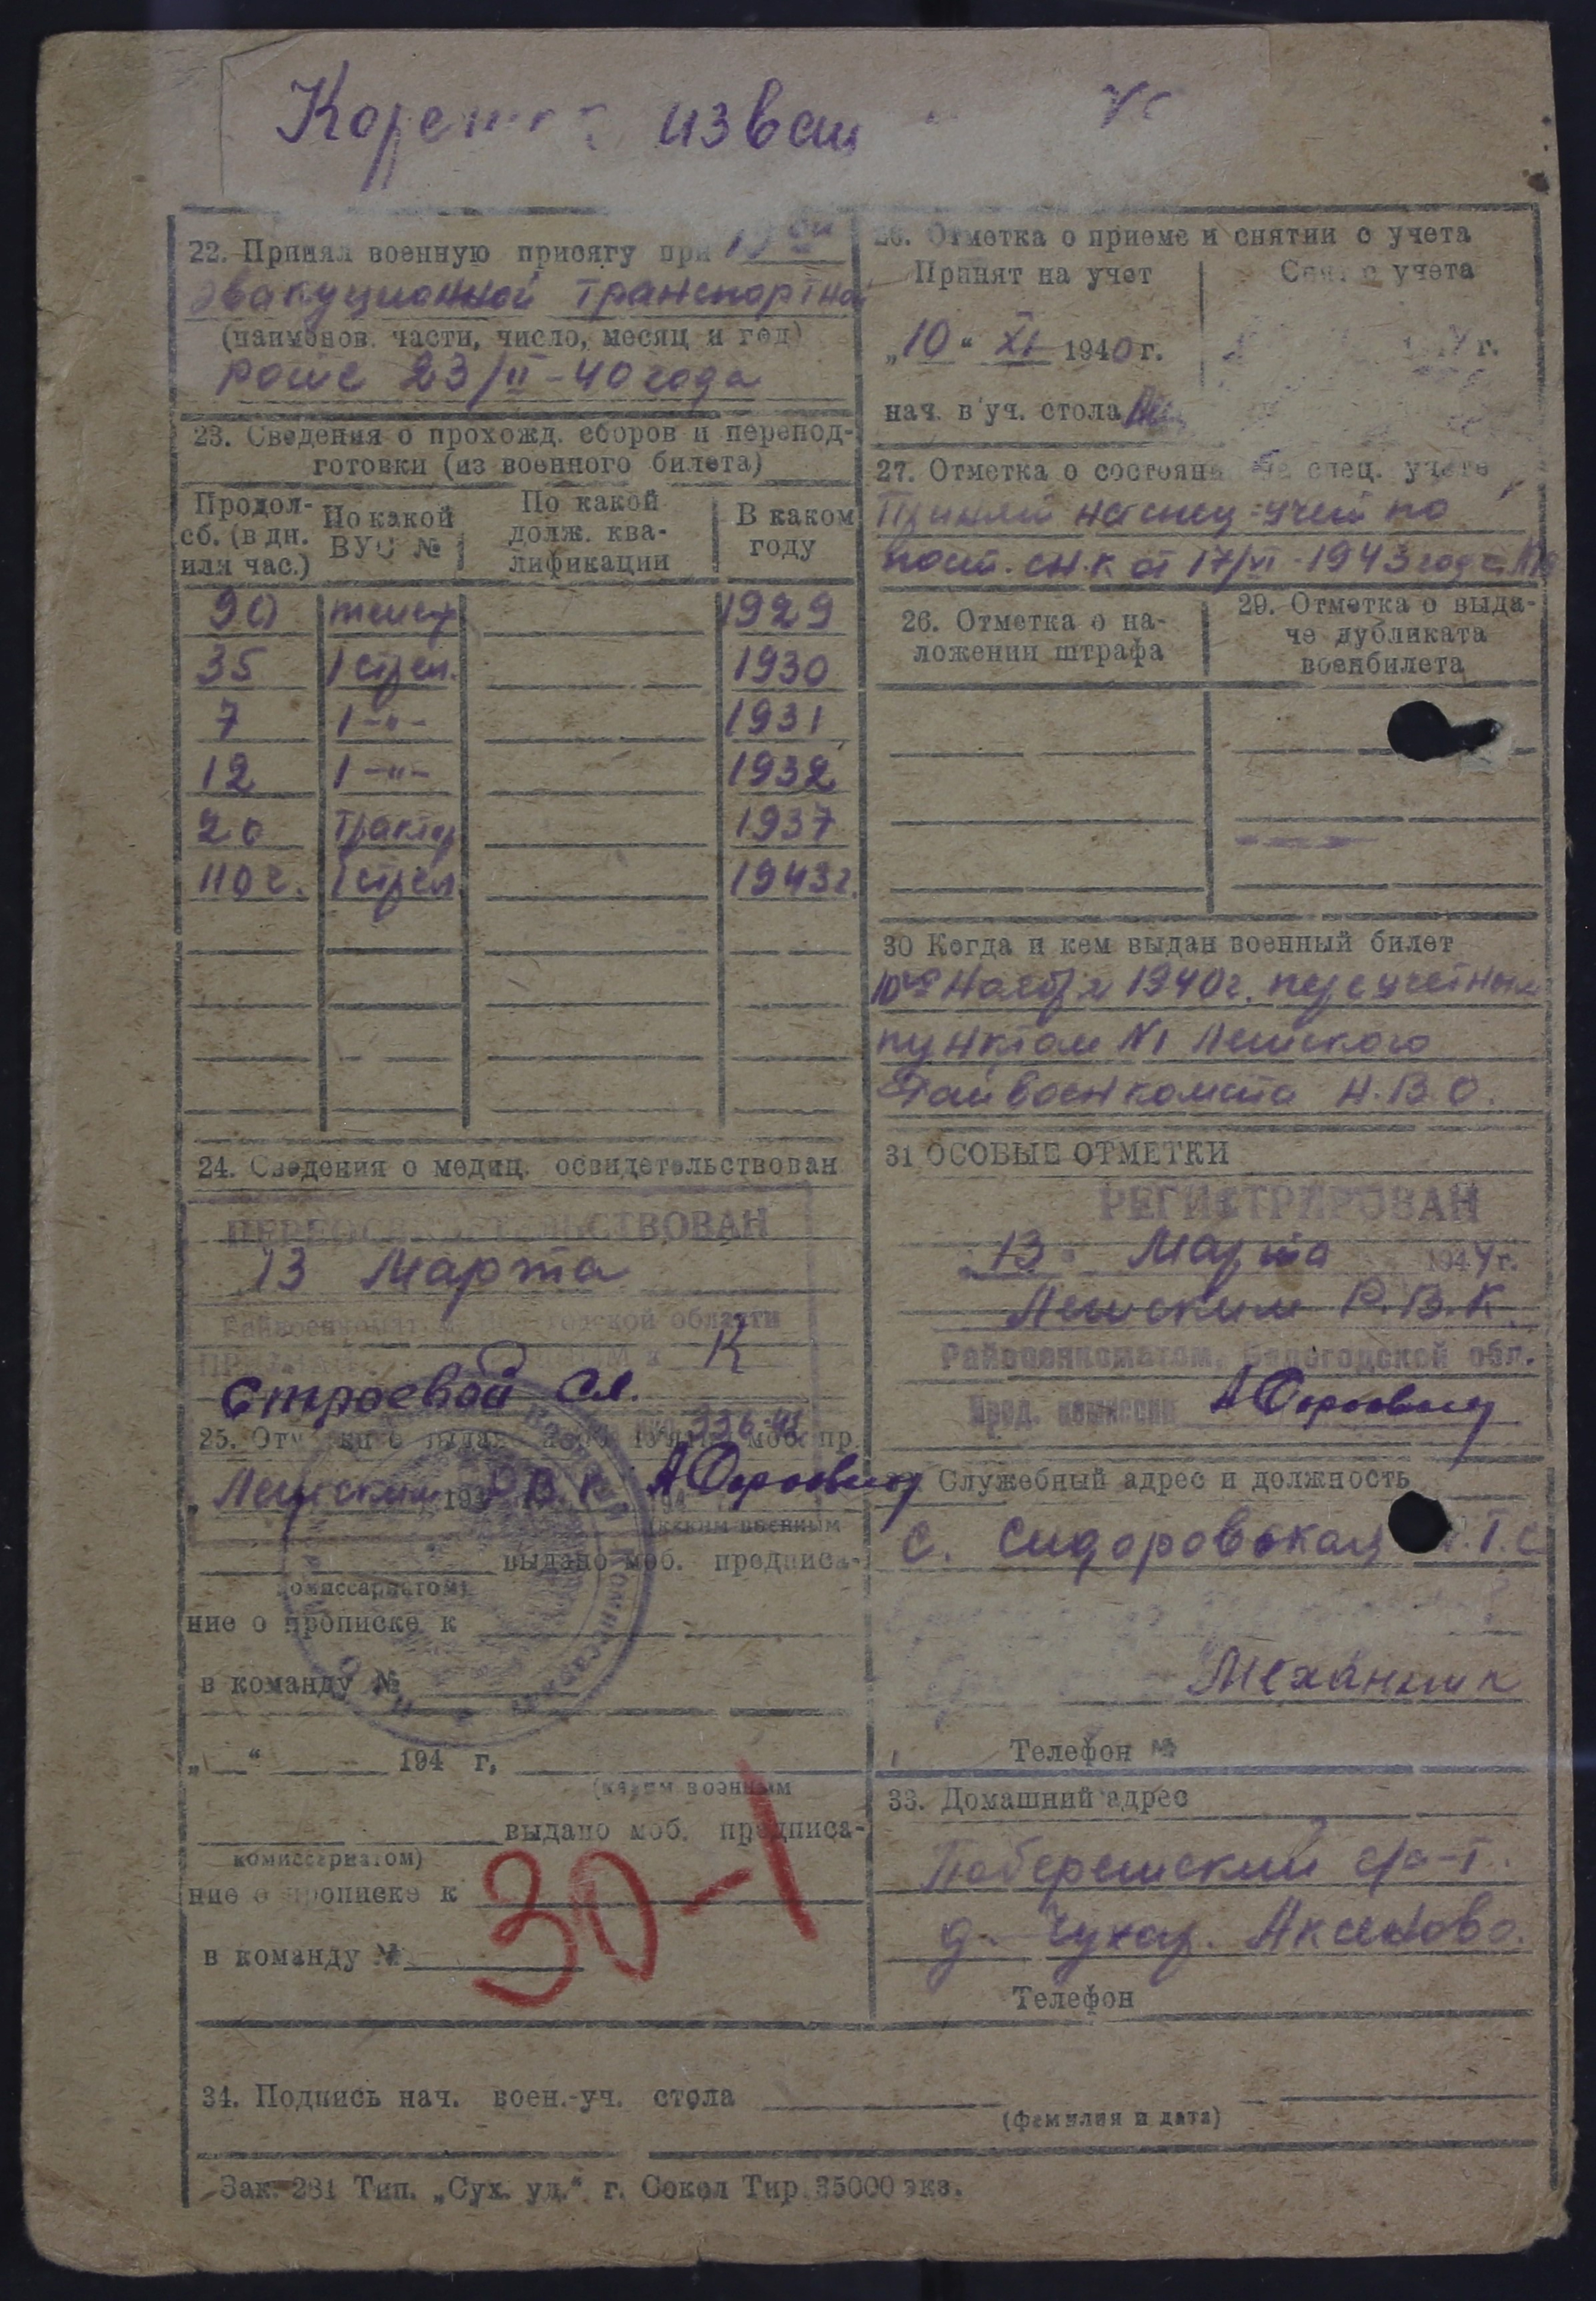 извещ
22. Принял военную присягу при
эвакуационной транспортной
(наименов. части, число, месяц и год)
роте 23/II-40 года
23. Сведения о прохожд. сборов и перепод-
готовки (из военного билета)
Продол- сб. (в дн. или час.) По какой ВУС № По какой долж. ква- лификации В каком году
90 1929
35 1 стрел. 1930
7 1 -"- 1931
12 1 -"- 1932
20 Трактор 1937
110 ч. 1 стрел. 1943 г.
24. Сведения о медиц. освидетельствован
ПЕРЕОСВИДЕТЕЛЬСТВОВАН
13 Марта
Райвоенкоматом области
К
Строевой
336-42
25. моб. пр.
Р В К
(каким военным
выдано моб. предписа-
комиссариатом)
ние о прописке к
в команду №
„ “ 194 г,
(каким военным
выдано моб. предписа-
комиссариатом)
ние о прописке к
30-1
в команду №
26. Отметка о приеме и снятии с учета
Принят на учет Снят с учета
„10“ XI 1940 г. г.
нач. в уч. стола
27. Отметка о состояни на спец. учете
Принят на спец-учет по
пост. СНК от 17/VI-1943 года
26. Отметка о на-
ложении штрафа
29. Отметка о выда-
че дубликата
военбилета
30 Когда и кем выдан военный билет
10го Ноября 1940 г. переучетным
пунктом №1
Райвоенкомата
31 ОСОБЫЕ ОТМЕТКИ
РЕГИСТРИРОВАН
13 Марта 1944 г.
Р.В.К.
Райвоенкоматом, Вологодской обл.
Пред. комиссии
Служебный адрес и должность
с. Сидоровская Т.С
Механик
Телефон №
33. Домашний адрес
с/с-т.
д. Чухар. Аксеново.
Телефон
34. Подпись нач. воен.-уч. стола
(фамилия и дата)
Зак. 281 Тип. „Сух. уд.“ г. Сокол Тир. 35000 экз.